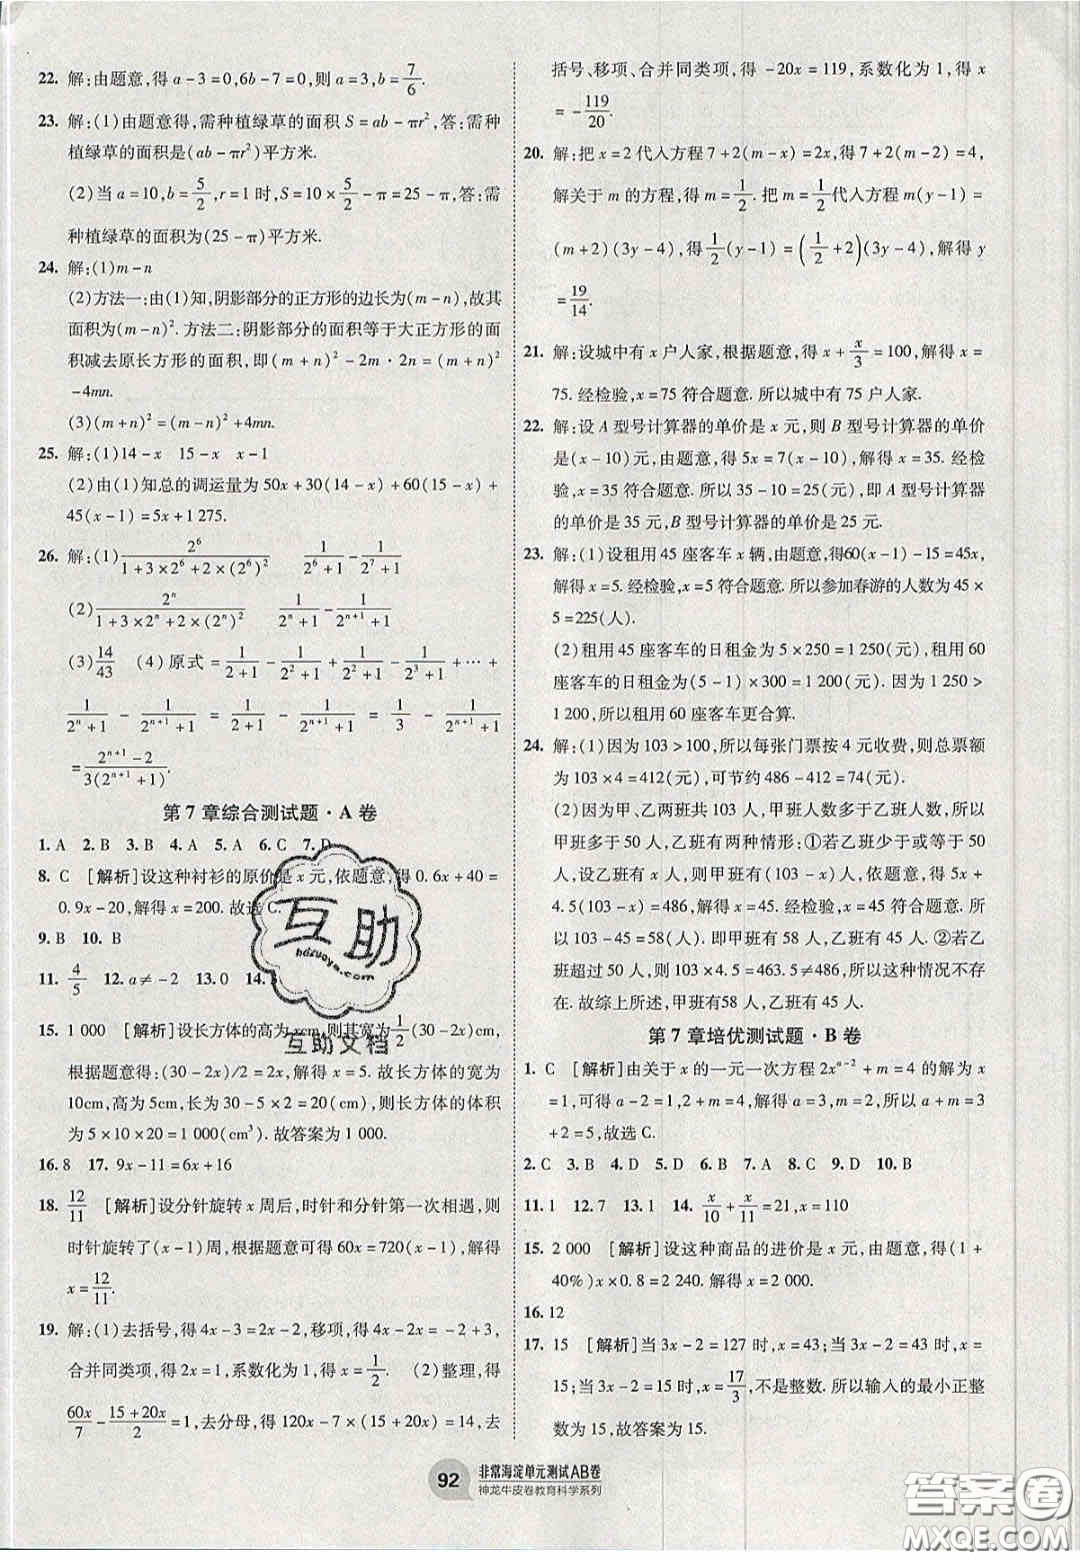 22. 解:由题意,得 a-3=0,6b-7=0,则 a=3,b=7/6.
23. 解:(1)由题意得,需种植绿草的面积 S=ab-πr²,答:需种
植绿草的面积是(ab-πr²)平方米.
(2)当 a=10,b=5/2,r=1 时,S=10×5/2-π=25-π,答:需
种植绿草的面积为(25-π)平方米.
24. 解:(1)m-n
(2)方法一:由(1)知,阴影部分的正方形的边长为(m-n),故其
面积为(m-n)². 方法二:阴影部分的面积等于大正方形的面
积减去原长方形的面积,即(m+n)²-2m·2n=(m+n)²
-4mn.
(3)(m+n)²=(m-n)²+4mn.
25. 解:(1)14-x 15-x x-1
(2)由(1)知总的调运量为 50x+30(14-x)+60(15-x)+
45(x-1)=5x+1 275.
26. 解:(1)2⁶/(1+3×2⁶+2×(2⁶)²) 1/(2⁶+1)-1/(2⁷+1)
(2)2ⁿ/(1+3×2ⁿ+2×(2ⁿ)²) 1/(2ⁿ+1)-1/(2ⁿ⁺¹+1)
(3)14/43 (4)原式=1/(2+1)-1/(2²+1)+1/(2²+1)-1/(2³+1)+…+
1/(2ⁿ+1)-1/(2ⁿ⁺¹+1)=1/(2+1)-1/(2ⁿ⁺¹+1)=1/3-1/(2ⁿ⁺¹+1)
=(2ⁿ⁺¹-2)/(3(2ⁿ⁺¹+1)).
第 7 章综合测试题·A 卷
1. A 2. B 3. B 4. A 5. A 6. C 7. D
8. C [解析]设这种衬衫的原价是 x 元,依题意,得 0.6x+40=
0.9x-20,解得 x=200. 故选 C.
9. B 10. B
11. 4/5 12. a≠-2 13. 0 14.
15. 1 000 [解析]设长方体的高为 xcm,则其宽为1/2(30-2x)cm,
根据题意得:(30-2x)/2=2x,解得 x=5. 故长方体的宽为
10cm,高为 5cm,长为 20cm,则长方体的体积
为 5×10×20=1 000(cm³). 故答案为 1 000.
16. 8 17. 9x-11=6x+16
18. 12/11 [解析]设分针旋转 x 周后,时针和分针第一次相遇,则
时针旋转了(x-1)周,根据题意可得 60x=720(x-1),解得
x=12/11.
19. 解:(1)去括号,得 4x-3=2x-2,移项,得 4x-2x=-2+3,
合并同类项,得 2x=1,系数化为 1,得 x=1/2. (2)整理,得
60x/7-(15+20x)/2=1,去分母,得 120x-7×(15+20x)=14,去
括号、移项、合并同类项,得 -20x=119,系数化为 1,得 x
=-119/20.
20. 解:把 x=2 代入方程 7+2(m-x)=2x,得 7+2(m-2)=4,
解关于 m 的方程,得 m=1/2. 把 m=1/2代入方程 m(y-1)=
(m+2)(3y-4),得1/2(y-1)=(1/2+2)(3y-4),解得 y
=19/14.
21. 解:设城中有 x 户人家,根据题意,得 x+x/3=100,解得 x=
75. 经检验,x=75 符合题意. 所以城中有 75 户人家.
22. 解:设 A 型号计算器的单价是 x 元,则 B 型号计算器的单价
是(x-10)元,由题意,得 5x=7(x-10),解得 x=35. 经检
验,x=35 符合题意. 所以 35-10=25(元),即 A 型号计算器
的单价是 35 元,B 型号计算器的单价是 25 元.
23. 解:(1)设租用 45 座客车 x 辆,由题意,得60(x-1)-15=45x,
解得 x=5. 经检验,x=5 符合题意. 所以参加春游的人数为 45×
5=225(人).
(2)租用 45 座客车的日租金为 5×250=1 250(元),租用 60
座客车的日租金为(5-1)×300=1 200(元). 因为 1 250>
1 200,所以租用 60 座客车更合算.
24. 解:(1)因为 103>100,所以每张门票按 4 元收费,则总票额
为 103×4=412(元),可节约 486-412=74(元).
(2)因为甲、乙两班共 103 人,甲班人数多于乙班人数,所以
甲班多于 50 人,乙班有两种情形:①若乙班少于或等于 50
人,设乙班有 x 人,则甲班有(103-x)人,依题意,得 5x+
4.5(103-x)=486,解得 x=45. 经检验,x=45 符合题意. 所
以 103-45=58(人). 即甲班有58 人,乙班有 45 人. ②若乙
班超过 50 人,因为 103×4.5=463.5≠486,所以这种情况不存
在. 故综上所述,甲班有58 人,乙班有 45 人.
第 7 章培优测试题·B 卷
1. C [解析]由关于 x 的一元一次方程 2xᵃ⁻²+m=4 的解为 x
=1,可得 a-2=1,2+m=4,解得 a=3,m=2,所以 a+m=3
+2=5,故选 C.
2. C 3. B 4. D 5. B 6. D 7. A 8. C 9. D 10. B
11. 1 12. 7 13. 1 14. x/10+x/11=21,x=110
15. 2 000 [解析]设这种商品的进价是 x 元,由题意,得(1+
40%)x×0.8=2 240. 解得 x=2 000.
16. 12
17. 15 [解析]当 3x-2=127 时,x=43;当 3x-2=43 时,x=
15;当 3x-2=15 时,x=17/3,不是整数. 所以输入的最小正整
数为 15,故答案为 15.
互助
hdzuoye.com
互助文档
92 非常海淀单元测试AB卷
神龙牛皮卷教育科学系列
答案圈
MXQE.COM